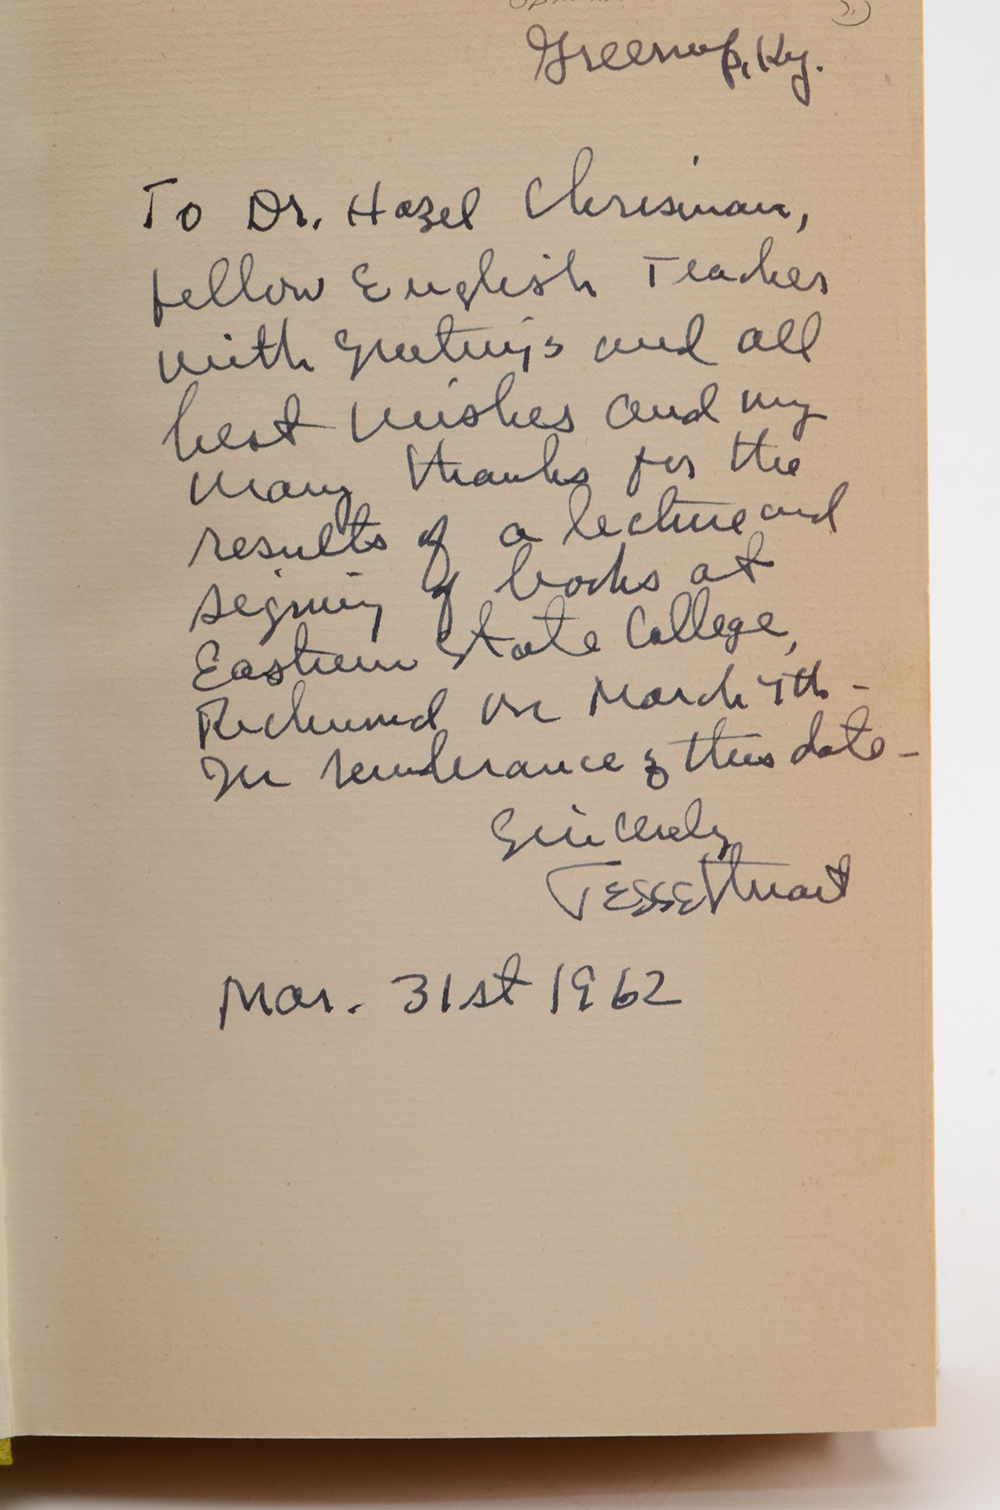 Greenup, Ky.
To Dr. Hazel Chrisman,
fellow English Teacher
with greetings and all
best wishes and my
many thanks for the
results of a lecture and
signing of books at
Eastern State College,
Richmond on March 7th -
In remberance of this date -
Sincerely
Jesse Stuart
Mar. 31st 1962